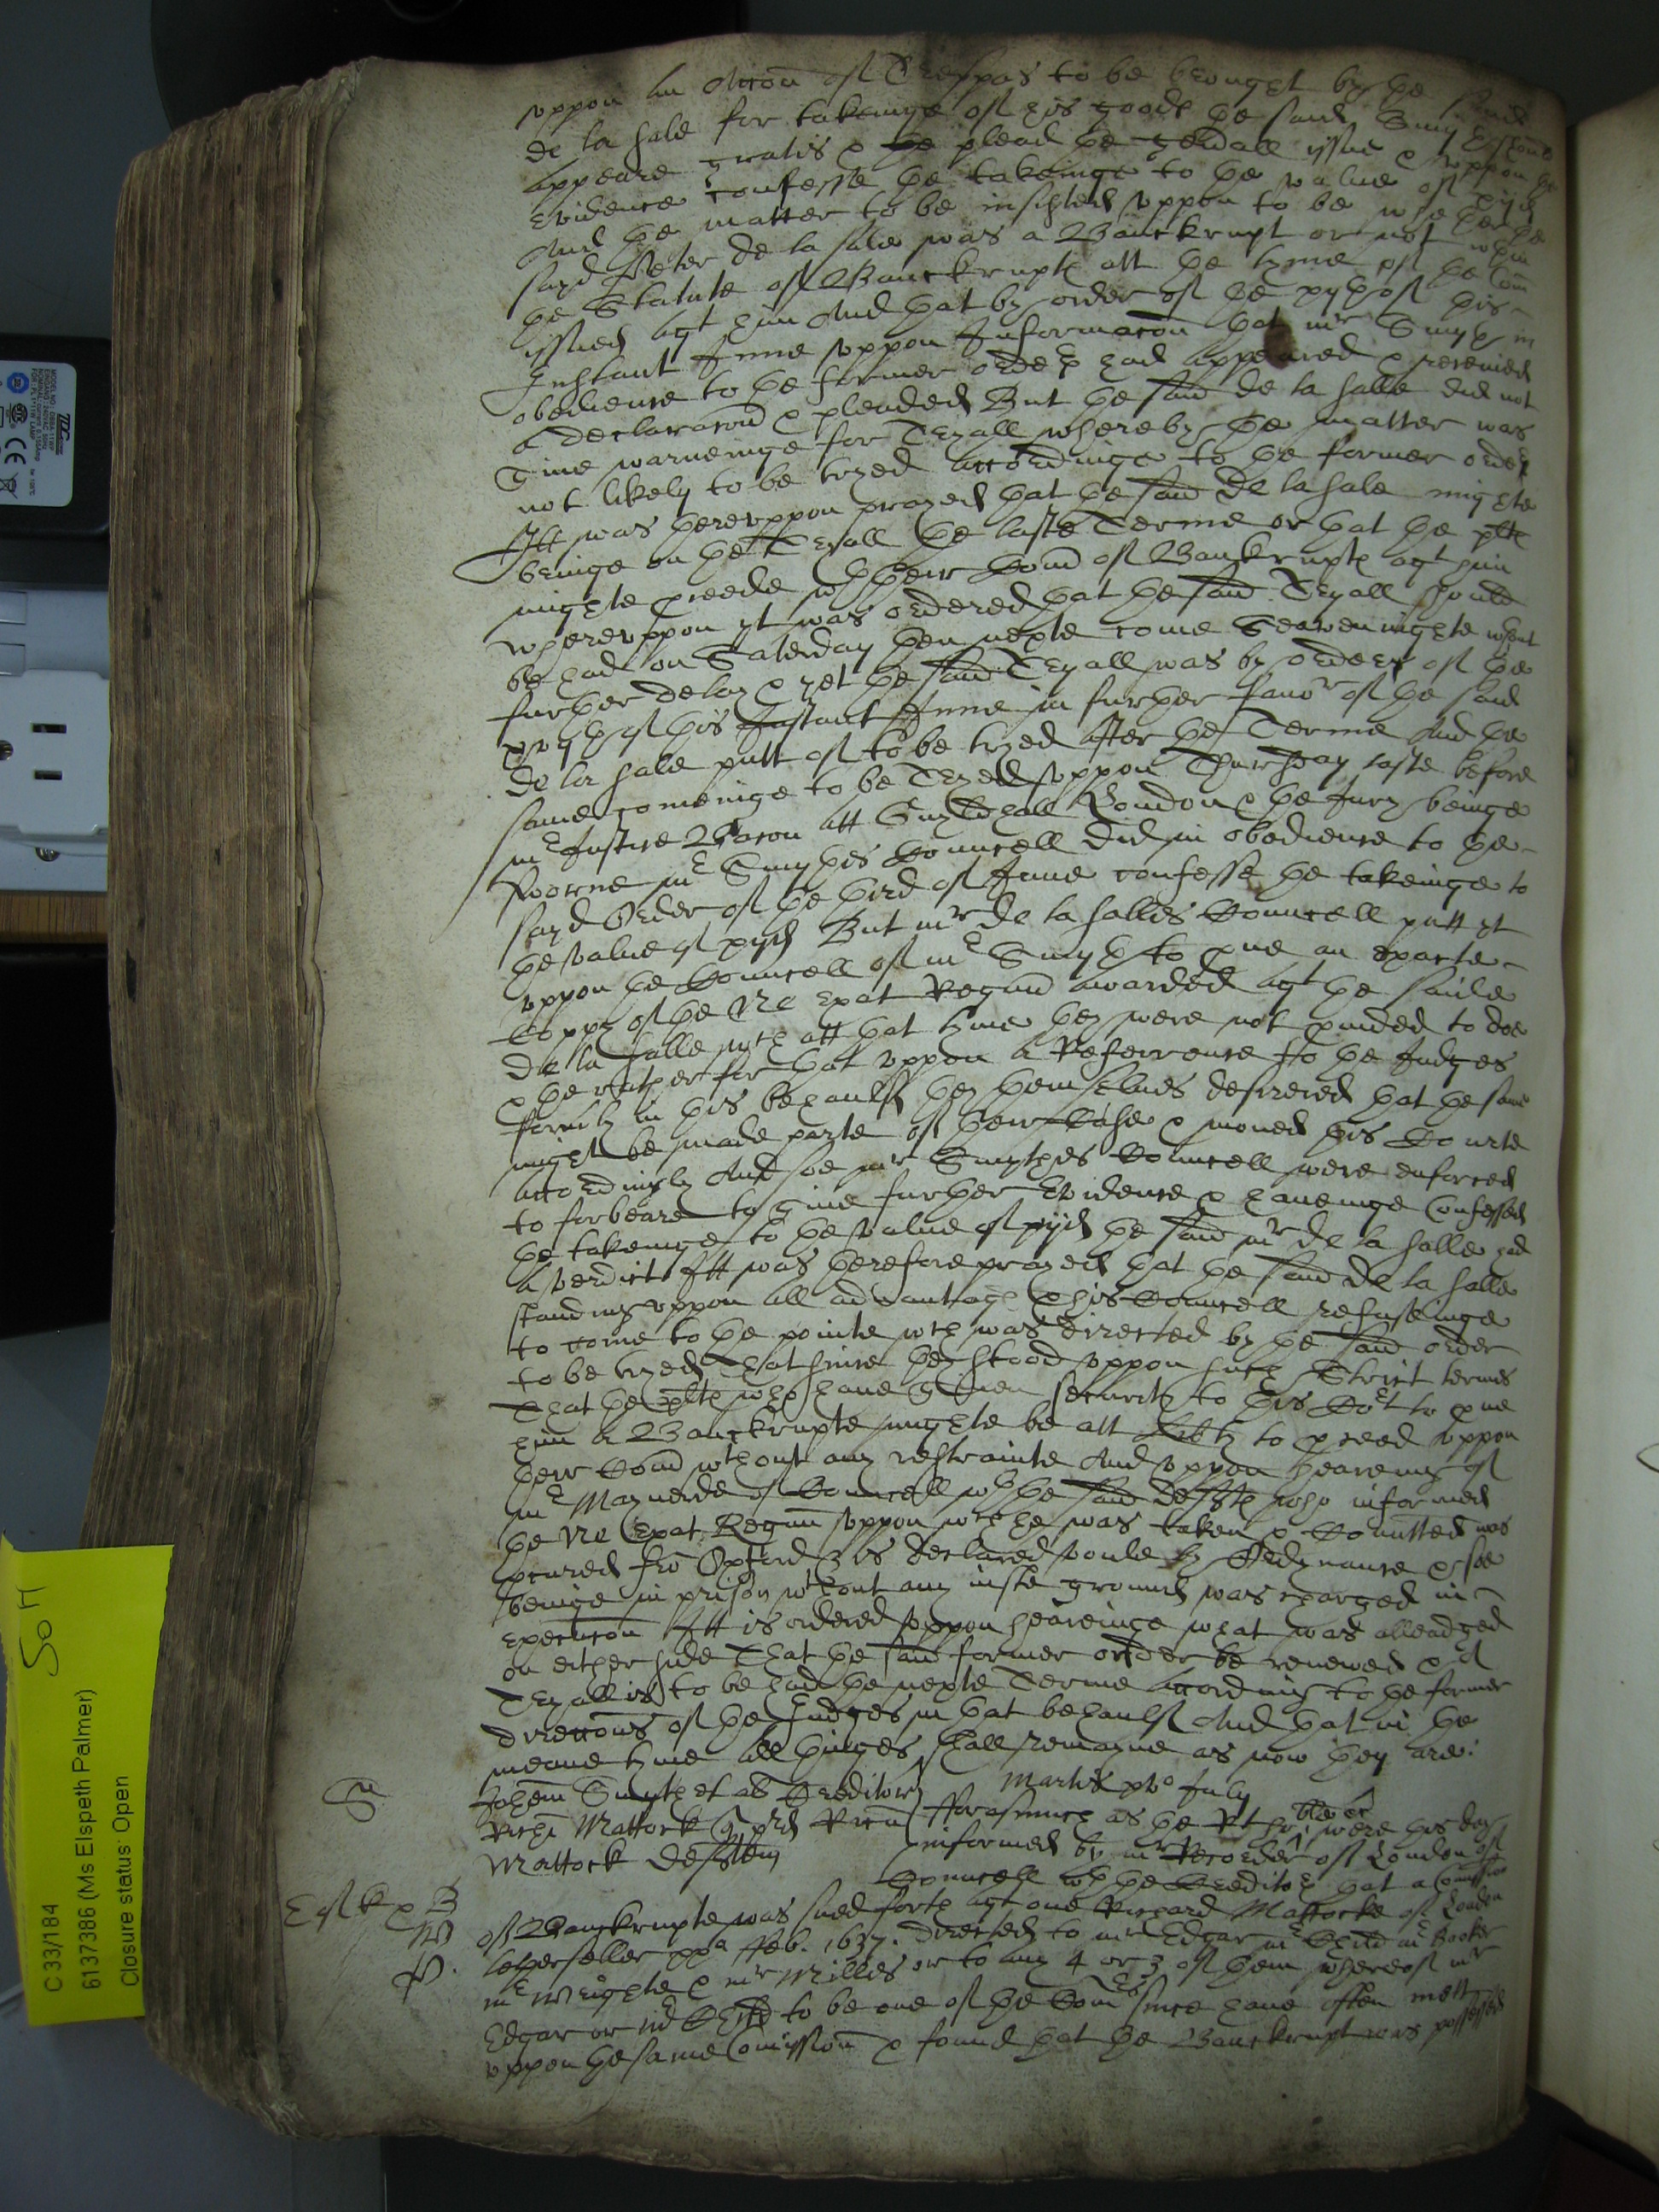 vppon an Accon of Trespas to be brought by the said
de la Sale for takeinge of his goods the said Smyth should
appeare gratis & plead the gen'all issue & vppon the
Evidence confesse the takeinge to the value of xijd
And the matter to be insisted vppon to be whether the
sayd Peter de la Sale was a Banckrupt or not wthin
the Statute of Banckrupts att the tyme of the Com
issued agt him And that by order of the xijth of this
Instant June vppon Informacon that mr Smyth in
obedience to the former order had appeared & receiued
a declaracon & pleaded But the said de la Salle did not
Giue warneinge for Tryall whereby the matter was
not likely to be tryed accordinge to the former order
Itt was therevppon prayed that the said De la Sale mighte
bringe on the Tryall the laste Terme or that the plts
mighte pceede wth their Comd of Banckrupts agt him
Wherevppon yt was ordered that the said Tryall should
be had on Saterday then nexte come Seavenighte wthout
further delay & yet the said Tryall was by order of the
xvijth of this Instant June in further favor of the said
De la Sale putt of to be tryed after the Terme And the
same comeinge to be Tryed vppon Thursday laste before
mr Justice Bacon att Guyldhall London & the Jury beinge
sworne mr Smythes Councell did in obedience to the
sayd Order of the third of June confesse the takeinge to
the value of xijd But mr de la Salles Councell putt yt
vppon the Councell of mr Smyth to pue an exacte
Coppy of the Ne exeat Regnu awarded agt the saide
De la Salle wch att that tyme they were not pvided to doe
& the rather for that vppon a Reference to the Judges
form'ly in this behaulf they themselues desired that the same
might be made parte of their Case & moued this Courte
accordingly And soe mr Smythes Councell were enforced
to forbeare to giue further Evidence & haueinge Confessed
the takeinge to the value of xijd the said mr de la Salle had
a verdict Itt was therefore prayed that the said De la Salle
standing vppon all advantages & his Councell refuseinge
to come to the pointe wch was directed by the said order
to be tryed That since they stood vppon such Strict termes
That the plts who haue Giuen security to this Cort to pue
him a Banckrupte mighte be att libty to pceed vppon
their Comd wthout any restrainte And vppon heareing of
mr Maynerde of Councell wth the said Defts who informed
the Ne Exeat Regnu vppon wch he was taken & Comitted was
pcured fro Oxford & is declared voide by Ordynance & soe
beinge in prison wthout any iuste ground was charged in
execucon Itt is ordered vppon heareinge what was alleadged
on either side That the said former order be renewed & yt
Tryall is to be had the nexte Terme according to the former
direccons of the Judges in that behaulf And that in the
meane tyme all thinges shall remayne as now they are.
Martis pro July
Johem Smyth et al Creditors
Forasmuch as the Rt hoble were this day
Richi Mattock
informed by mr Recorder of London of
Mattock deften
Councell wth the Creditors that a Comission
of Banckrupte was sued forth agt one Richard Mattocke of London
letherseller Feb. 1637. directed to mr Edgar mr mr Barker
mr Wrighte & mr Milles or to any 4 or 3 of them whereof mr
Edgar or mr to be one of the Comrs since haue often mett
vppon the same Comission & found that the Banckrupt was possessed
C 33/184
6137386 (Ms Elspeth Palmer)
Closure status: Open